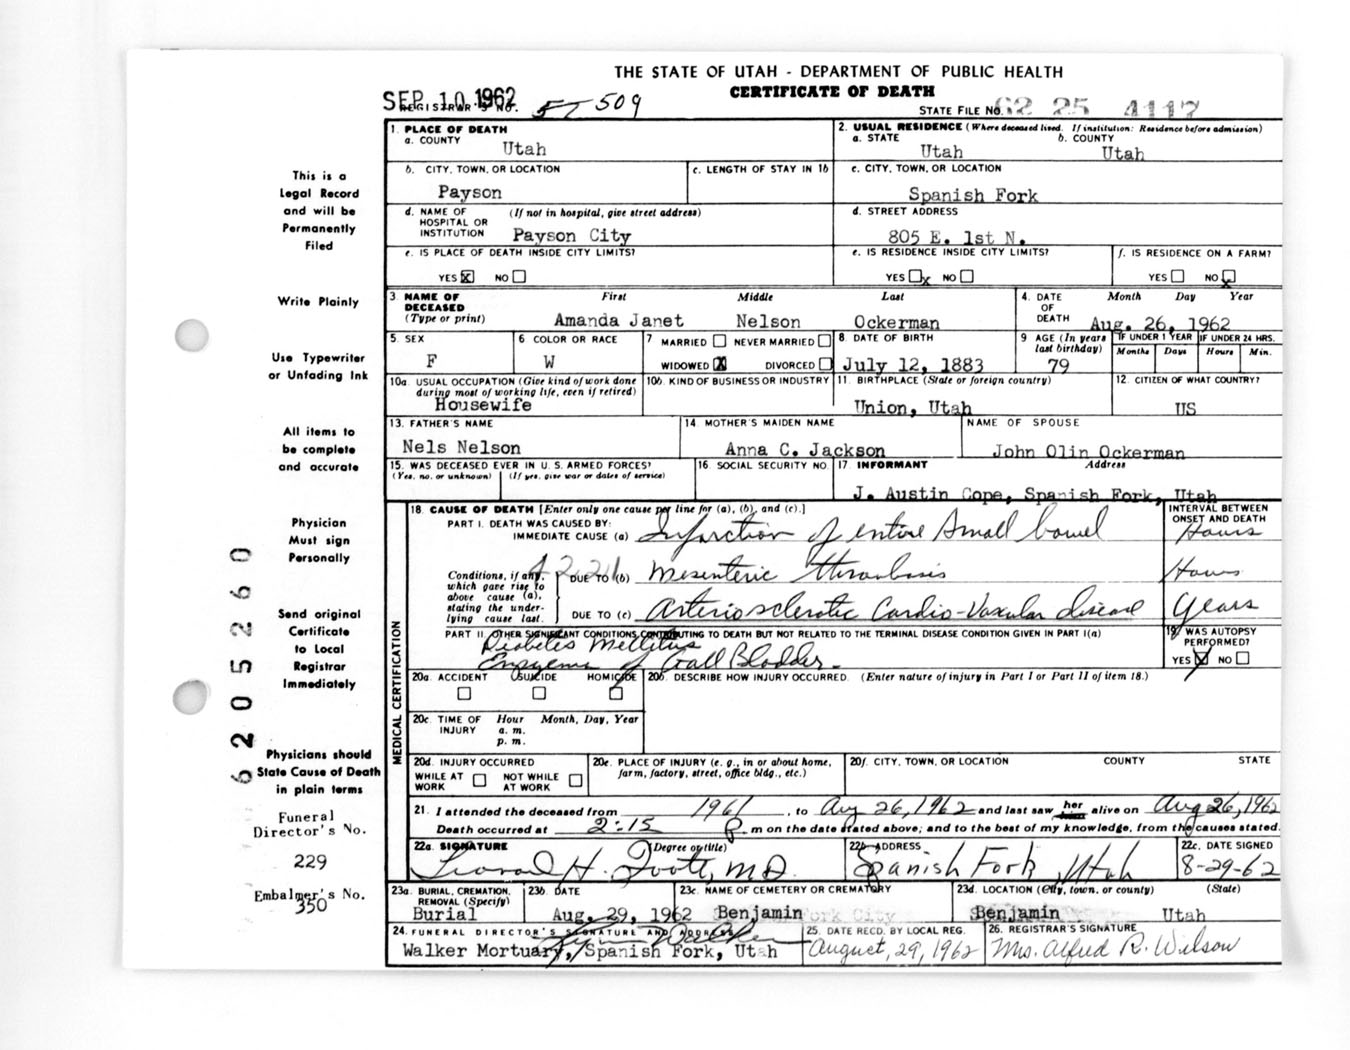 THE STATE OF UTAH - DEPARTMENT OF PUBLIC HEALTH
CERTIFICATE OF DEATH
SEP 10 1962
REGISTRAR'S NO. 509
STATE FILE NO. 62 25 4117
This is a
Legal Record
and will be
Permanently
Filed
Write Plainly
Use Typewriter
or Unfading Ink
All items to
be complete
and accurate
Physician
Must sign
Personally
Send original
Certificate
to Local
Registrar
Immediately
Physicians should
State Cause of Death
in plain terms
Funeral
Director's No.
229
Embalmer's No.
350
6205260
1. PLACE OF DEATH
a. COUNTY
Utah
2. USUAL RESIDENCE (Where deceased lived. If institution: Residence before admission)
a. STATE b. COUNTY
Utah Utah
b. CITY, TOWN, OR LOCATION
Payson
c. LENGTH OF STAY IN 1b
c. CITY, TOWN, OR LOCATION
Spanish Fork
d. NAME OF (If not in hospital, give street address)
HOSPITAL OR
INSTITUTION Payson City
d. STREET ADDRESS
805 E. 1st N.
e. IS PLACE OF DEATH INSIDE CITY LIMITS?
YES X NO
e. IS RESIDENCE INSIDE CITY LIMITS?
YES x NO
f. IS RESIDENCE ON A FARM?
YES NO x
3. NAME OF First Middle Last
DECEASED
(Type or print) Amanda Janet Nelson Ockerman
4. DATE Month Day Year
OF
DEATH Aug. 26, 1962
5. SEX
F
6. COLOR OR RACE
W
7. MARRIED NEVER MARRIED
WIDOWED X DIVORCED
8. DATE OF BIRTH
July 12, 1883
9. AGE (In years
last birthday)
79
IF UNDER 1 YEAR IF UNDER 24 HRS.
Months Days Hours Min.
10a. USUAL OCCUPATION (Give kind of work done
during most of working life, even if retired)
Housewife
10b. KIND OF BUSINESS OR INDUSTRY
11. BIRTHPLACE (State or foreign country)
Union, Utah
12. CITIZEN OF WHAT COUNTRY?
US
13. FATHER'S NAME
Nels Nelson
14. MOTHER'S MAIDEN NAME
Anna C. Jackson
NAME OF SPOUSE
John Olin Ockerman
15. WAS DECEASED EVER IN U. S. ARMED FORCES?
(Yes, no, or unknown) (If yes, give war or dates of service)
16. SOCIAL SECURITY NO.
17. INFORMANT Address
J. Austin Cope, Spanish Fork, Utah
MEDICAL CERTIFICATION
18. CAUSE OF DEATH [Enter only one cause per line for (a), (b), and (c).]
INTERVAL BETWEEN
ONSET AND DEATH
PART I. DEATH WAS CAUSED BY:
IMMEDIATE CAUSE (a) Infarction of entire small bowel Hours
Conditions, if any,
which gave rise to
above cause (a),
stating the under-
lying cause last.
DUE TO (b) Mesenteric thrombosis Hours
DUE TO (c) Arteriosclerotic Cardio-Vascular disease Years
PART II. OTHER SIGNIFICANT CONDITIONS CONTRIBUTING TO DEATH BUT NOT RELATED TO THE TERMINAL DISEASE CONDITION GIVEN IN PART I(a)
Diabetes Mellitus
Empyema of Gall Bladder
19. WAS AUTOPSY
PERFORMED?
YES X NO
20a. ACCIDENT SUICIDE HOMICIDE
20b. DESCRIBE HOW INJURY OCCURRED. (Enter nature of injury in Part I or Part II of item 18.)
20c. TIME OF Hour Month, Day, Year
INJURY a. m.
p. m.
20d. INJURY OCCURRED
WHILE AT WORK NOT WHILE AT WORK
20e. PLACE OF INJURY (e. g., in or about home,
farm, factory, street, office bldg., etc.)
20f. CITY, TOWN, OR LOCATION COUNTY STATE
21. I attended the deceased from 1961, to Aug 26, 1962 and last saw her alive on Aug 26, 1962
Death occurred at 2:15 P. m on the date stated above; and to the best of my knowledge, from the causes stated.
22a. SIGNATURE (Degree or title)
H. Foote, M.D.
22b. ADDRESS
Spanish Fork, Utah
22c. DATE SIGNED
8-29-62
23a. BURIAL, CREMATION,
REMOVAL (Specify)
Burial
23b. DATE
Aug. 29, 1962
23c. NAME OF CEMETERY OR CREMATORY
Benjamin
23d. LOCATION (City, town, or county) (State)
Benjamin Utah
24. FUNERAL DIRECTOR'S SIGNATURE AND ADDRESS
Walker Mortuary, Spanish Fork, Utah
25. DATE RECD. BY LOCAL REG.
August, 29, 1962
26. REGISTRAR'S SIGNATURE
Mrs. Alfred R. Wilson